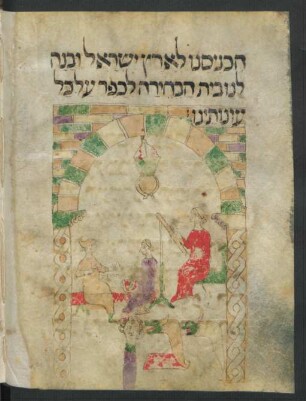 הכניסנו לארץ ישראל ובנה
לנו בית הבחירה לכפר על כל
עונותינו